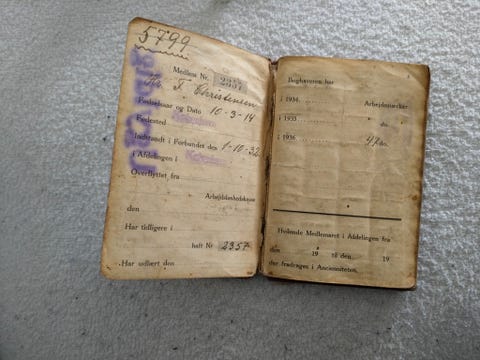 5799
Medlem Nr. 2357
T. Christensen
Fødselsaar og Dato 10-3-14
Fødested
Indtraadt i Forbundet den 1-10-32
i Afdelingen i
Overflyttet fra
Arbejdsløshedskasse
den
Har tidligere i
haft Nr 2357
Har udlært den
Boghaveren har
i 1934 Arbejdsuger
i 1935 " do.
i 1936 47 do.
Hvilende Medlemsret i Afdelingen fra
den 19 til den 19
der fradrages i Ancienniteten.